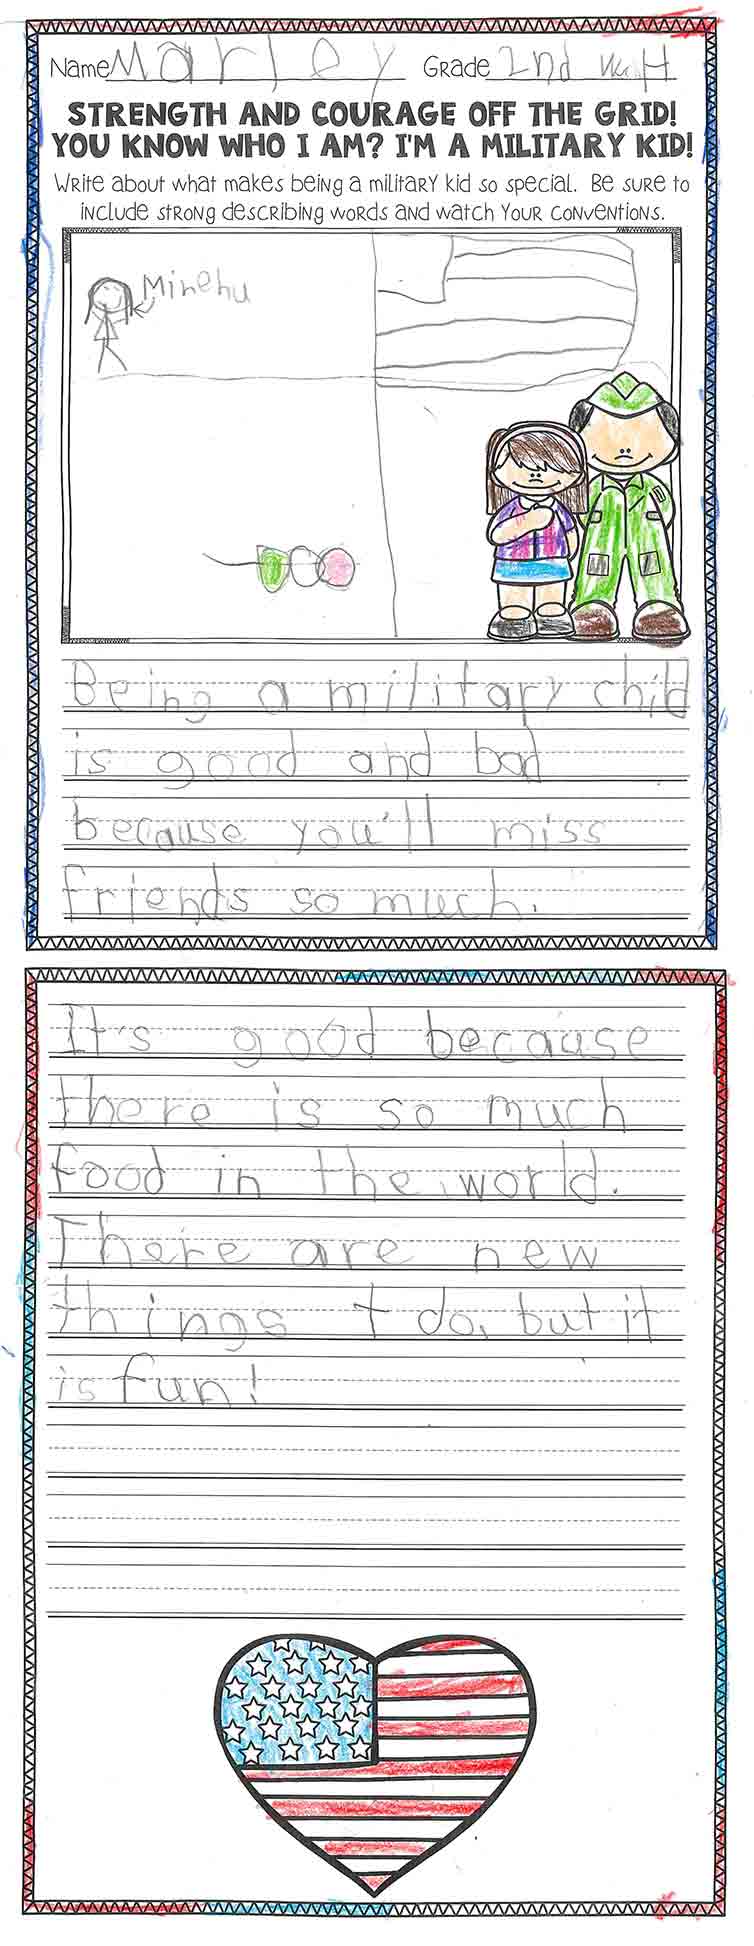 Name Marley Grade 2nd
STRENGTH AND COURAGE OFF THE GRID!
YOU KNOW WHO I AM? I'M A MILITARY KID!
Write about what makes being a military kid so special. Be sure to
include strong describing words and watch your conventions.
Minehu
Being a military child
is good and bad
because you'll miss
friends so much.
It's good because
there is so much
food in the world.
There are new
things t do, but it
is fun!